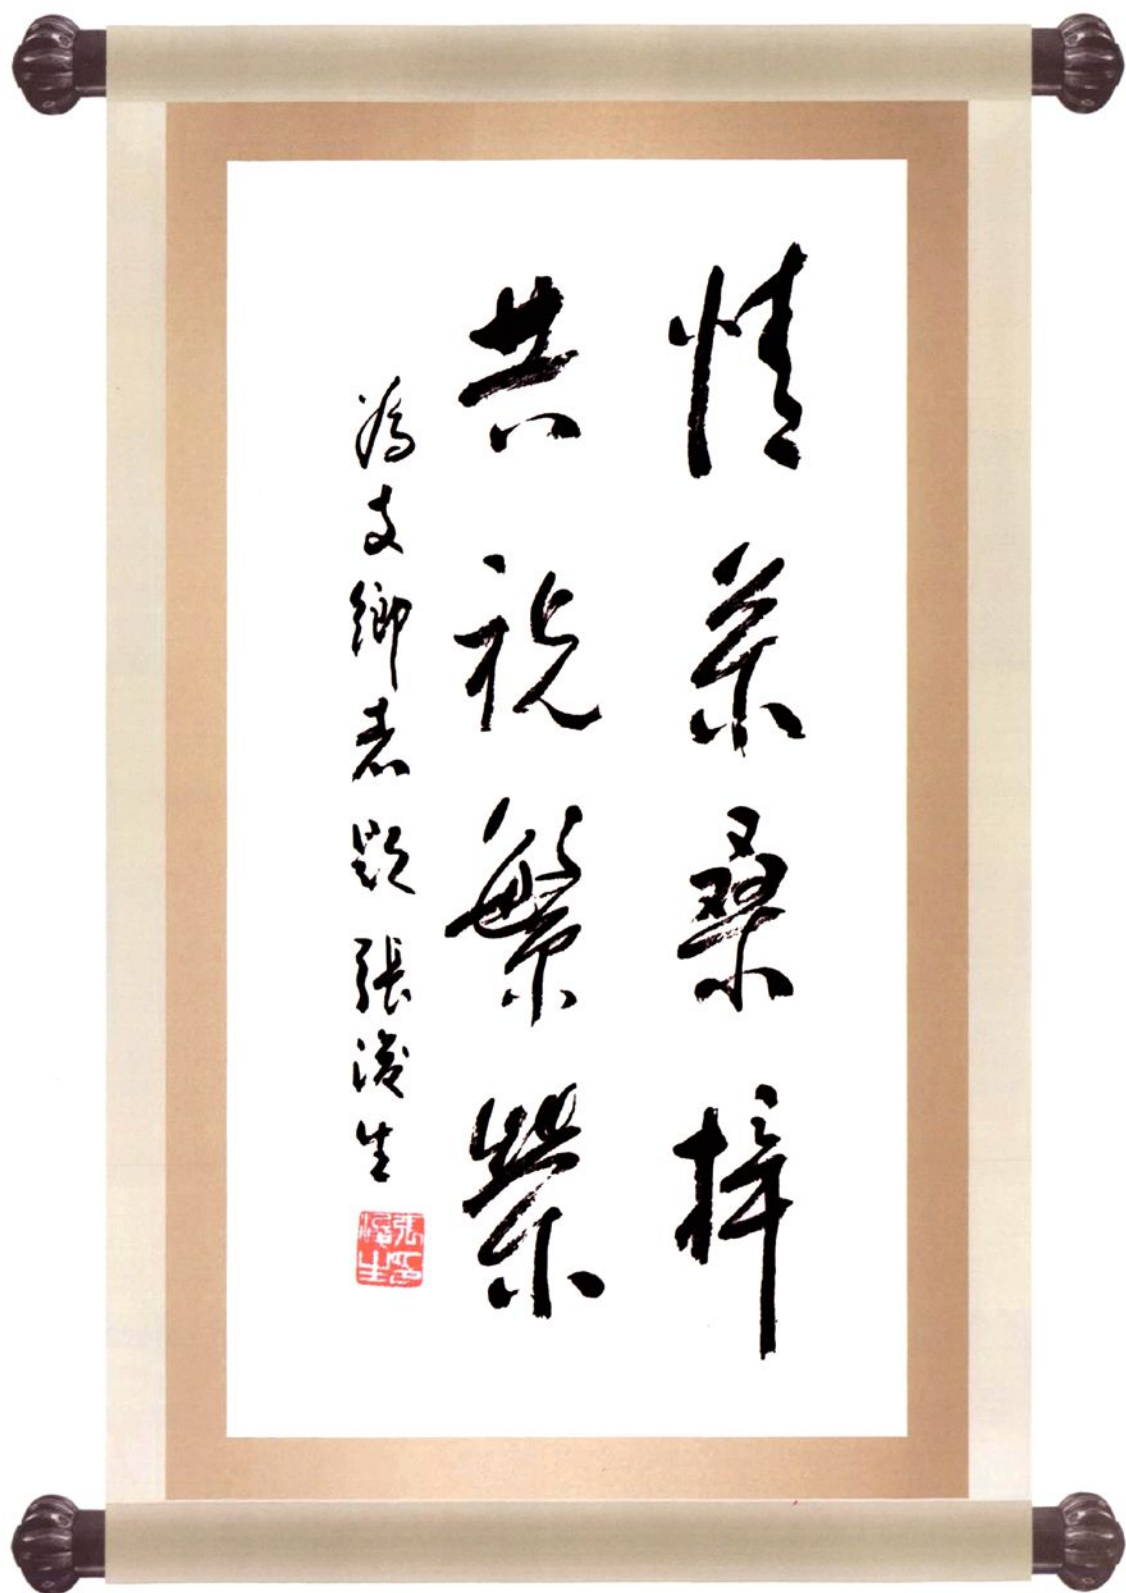 情萦桑梓
共祝繁榮
為支鄉志題 張浚生
張浚生印